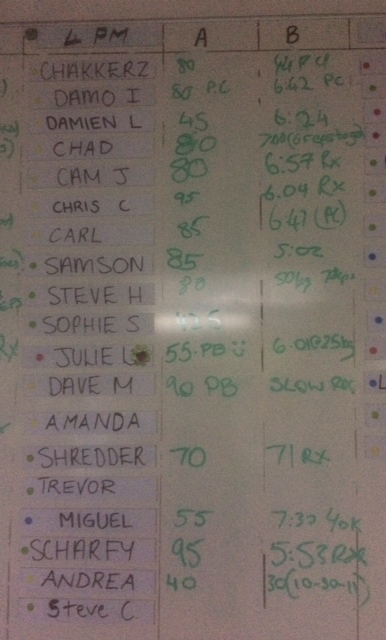 4 PM A B
CHAKKERZ 80 44 PC
DAMO I 80 P.C 6:42 PC
DAMIEN L 45 6:24
CHAD 80
CAM J 80 6:57 RX
CHRIS C 95 6.04 RX
CARL 85 6:47 (PC)
SAMSON 85 5:02
STEVE H 80 50kg
SOPHIE S 42.5
JULIE L 55.PB 6.01@25kg
DAVE M 90 PB SLOW ROX
AMANDA
SHREDDER 70 71 RX
TREVOR
MIGUEL 55 7:30 40K
SCHARFY 95 5:53 RX
ANDREA 40 30(10-30-11)
Steve C